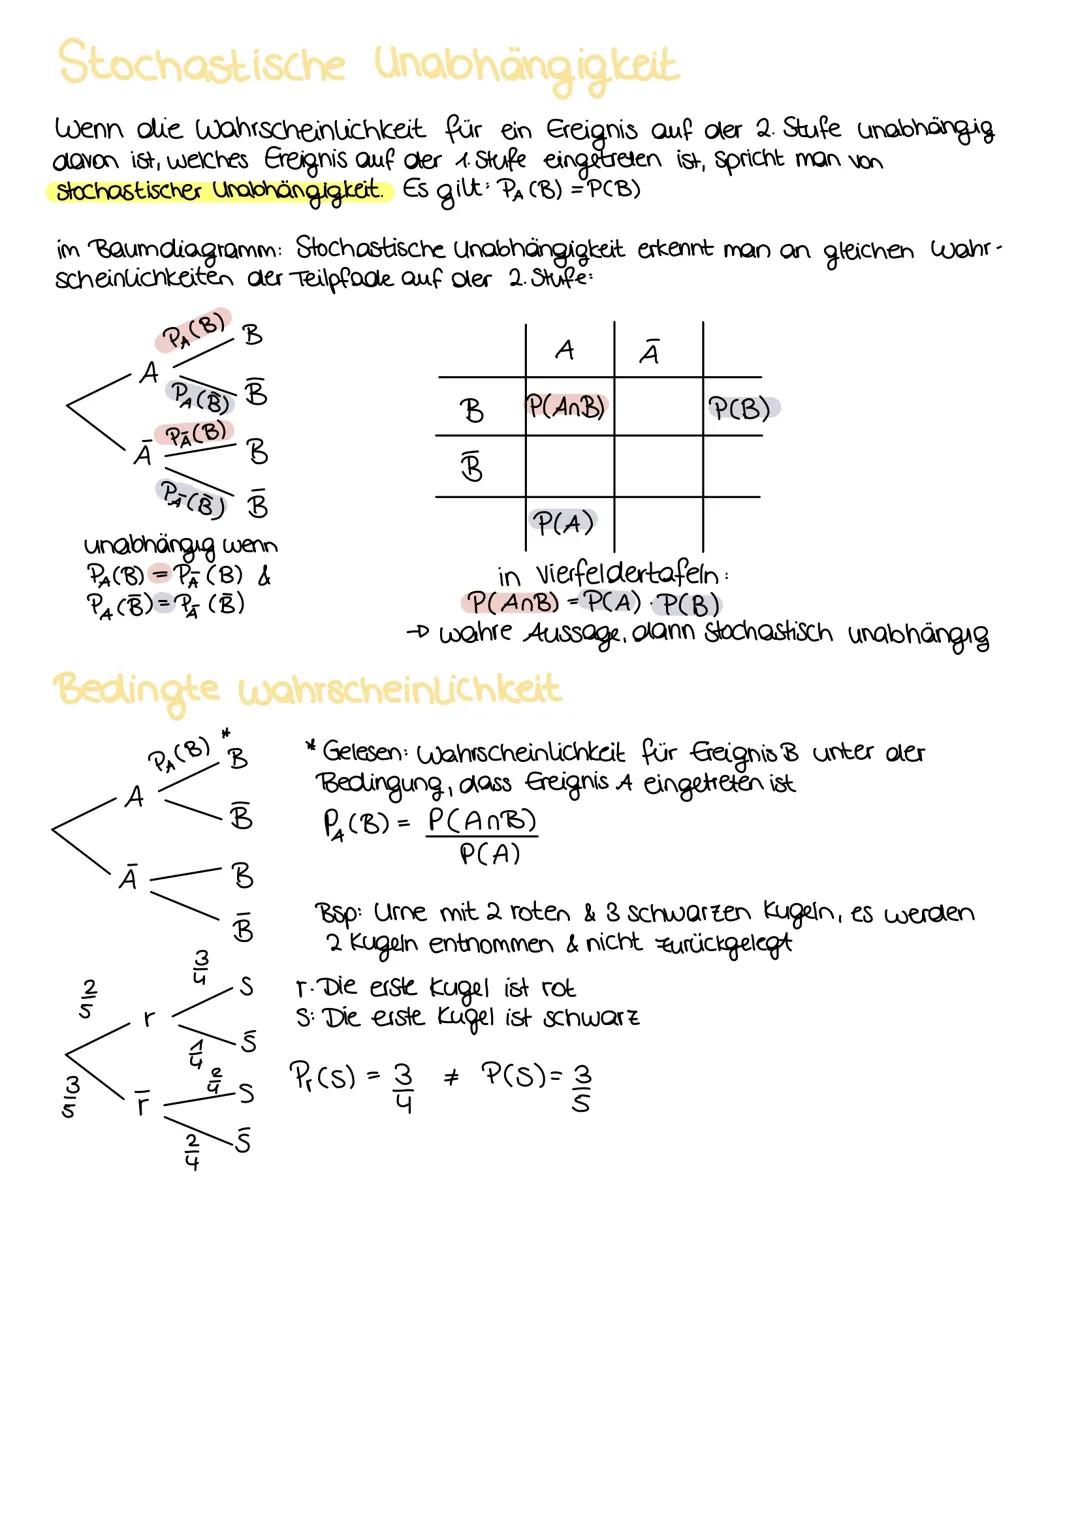 Stochastische Unabhängigkeit
Wenn die Wahrscheinlichkeit für ein Ereignis auf der 2. Stufe unabhängig
davon ist, welches Ereignis auf der 1. Stufe eingetreten ist, spricht man von
stochastischer Unabhängigkeit. Es gilt: P_A(B) = P(B)
im Baumdiagramm: Stochastische Unabhängigkeit erkennt man an gleichen Wahr-
scheinlichkeiten der Teilpfade auf der 2. Stufe:
P_A(B) B
A
P_A(B̄) B̄
P_Ā(B) B
Ā
P_Ā(B̄) B̄
unabhängig wenn
P_A(B) = P_Ā(B) &
P_A(B̄) = P_Ā(B̄)
A Ā
B P(A∩B) P(B)
B̄
P(A)
in Vierfeldertafeln:
P(A∩B) = P(A) · P(B)
→ wahre Aussage, dann stochastisch unabhängig
Bedingte Wahrscheinlichkeit
P_A(B) * B
A
B̄
Ā B
B̄
* Gelesen: Wahrscheinlichkeit für Ereignis B unter der
Bedingung, dass Ereignis A eingetreten ist
P_A(B) = P(A∩B)
P(A)
Bsp: Urne mit 2 roten & 3 schwarzen Kugeln, es werden
2 Kugeln entnommen & nicht zurückgelegt
2/5 r 3/4 S
1/4 S̄
3/5 r̄ 2/4 S
2/4 S̄
r: Die erste Kugel ist rot
S: Die erste Kugel ist schwarz
P_r(S) = 3/4 ≠ P(S) = 3/5